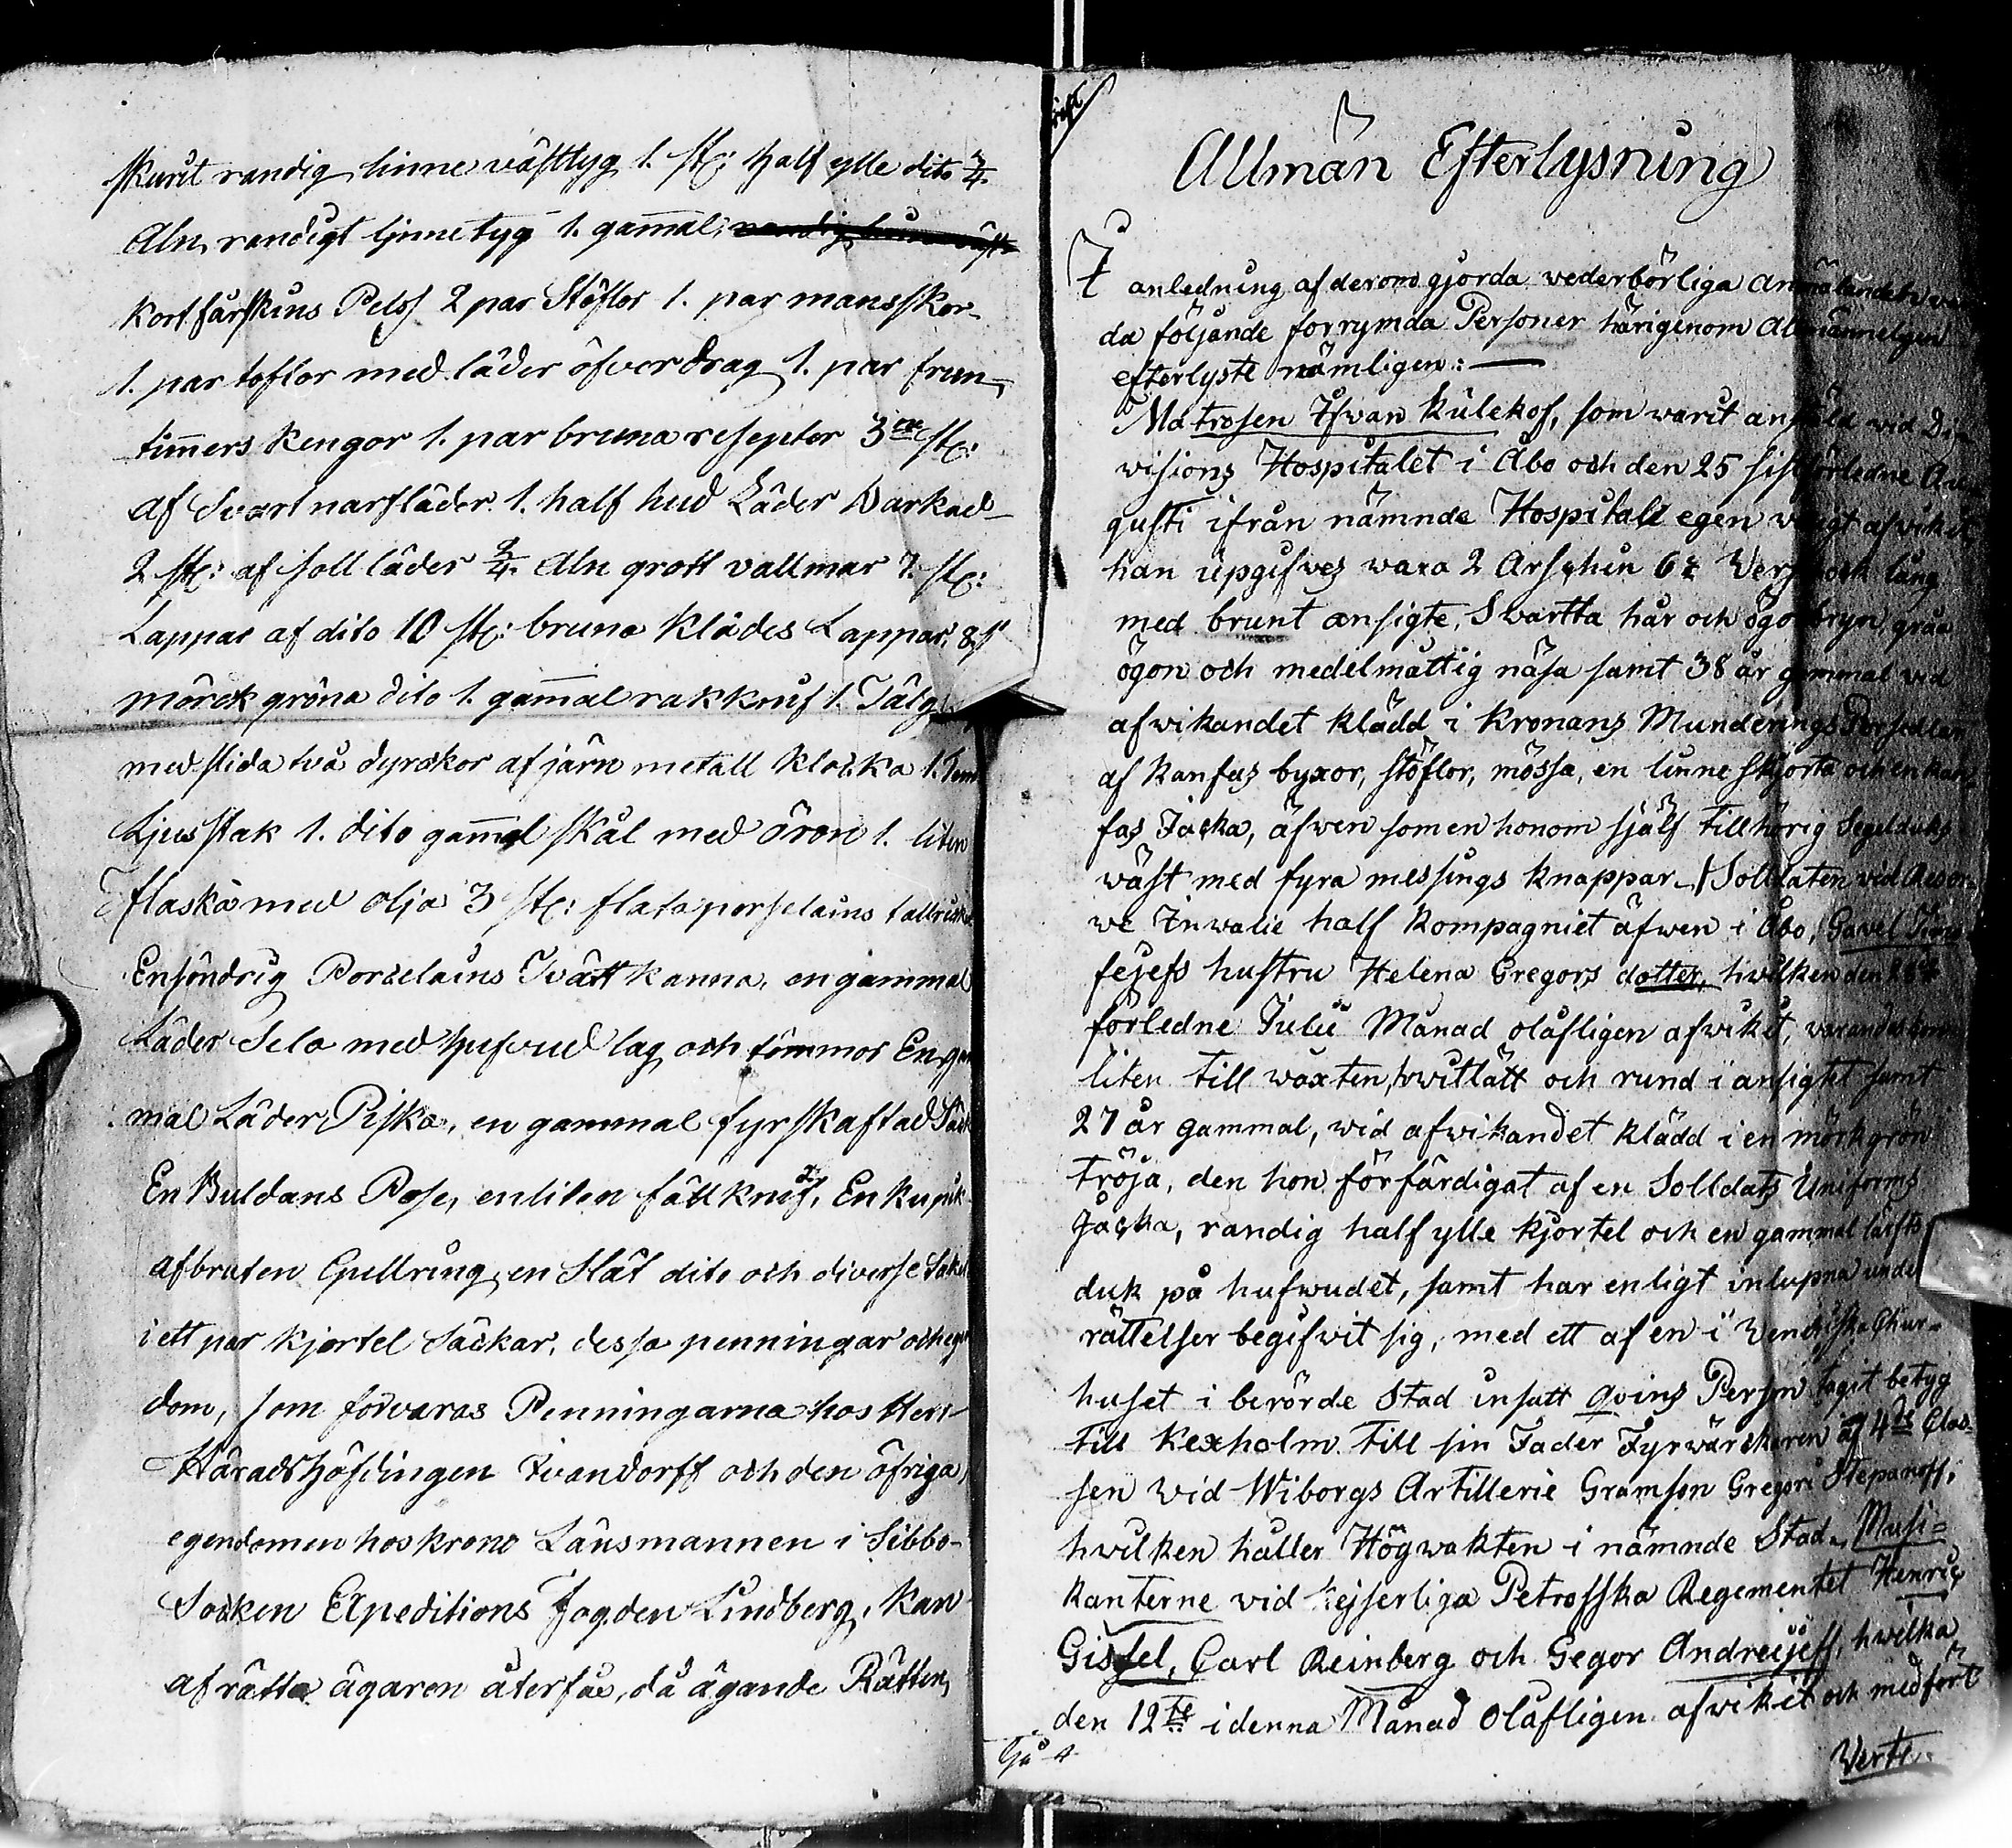 skurit randig linne västtyg 1. st: half ylle dito 3/4.
Aln, randigt linnetyg 1. gam̄al,
kort fårskins Pelss 2 par Stöflor 1. par mansskor
1. par toflor med läder öfverdrag 1. par frun-
tim̄ers kengor 1. par bruna 3ne st:
af Svart narfläder 1. half hud Läder Barkad
2 st: af soll läder 3/4. Aln grott vallmar 7. st:
Lappar af dito 10 st: bruna Klädes Lappar, 8 st
mörck gröna dito 1. gam̄al rakknif 1. Tälg
med slida två dyrckor af järn metall Klocka 1. Tenn
Ljus stak 1. dito gam̄al skål med öron 1. liten
flaska med olja 3 st: flata porselains tallrick
En söndrig Porcelains Tvätt kanna, en gammal
Läder Sela med hufvud lag och tömmor En gam
mal Läder Piska, en gammal fyrskaftad Säck
En Buldans Påse, en liten fäll knif, En
afbruten Gullring, en Slät dito och diverse Saker
i ett par kjortel Säckar, dessa penningar och egen
dom, som förvaras Penningarna hos Herr
Häradshöfdingen Ivandorff och den öfriga
egendomen hos krono Länsmannen i Sibbo-
Socken Expeditions Fogden Lindberg, kan
af rätta ägaren återfås, då ägande Rätten,
Allmän Efterlysning
I anledning af derom gjorda vederbörliga anmälanden var
da följande förrymda Personer härigenom Allmännelgen
efterlyste nämligen: —
Matrosen Ifwan Kulekof, som warit anstäld wid Di-
visions Hospitalet i Åbo och den 25 sistförledne Au-
gusti ifrån nämnde Hospitall egen willigt afvikit
han upgifves wara 2 Arschin 6½ Werschock lång
med brunt ansigte, Svartta hår och ögonbryn gråa
ögon och medelmåttig näsa samt 38 år gammal vid
afwikandet klädd i Kronans Munderings Persedlar
af Kanfas byxor, stöflor, mössa, en linne Skjorta och en kan
fas Jacka, äfwen som en honom själf tillhörig Segelduks
wäst med fyra messings knappar. Solldaten vid Reser-
we Inwalie half kompagniet äfwen i Åbo, Gavel
fejefs hustru Helena Gregors dotter, hvilken den
förledne Julii Månad olåfligen afvikit, varandes hon
liten till wäxten, hwitlätt och rund i ansigtet samt
27 år gammal, wid afwikandet klädd i en mörkgrön
tröja, den hon förfärdigat af en Solldats Uniforms
Jacka, randig half ylle kjortel och en gammal lärfts
duk på hufwudet, samt har enligt inlupna under
rättelser begifvit sig, med ett af en i Chur-
huset i berörde Stad insatt qvins Person tagit betyg
till Kexholm till sin Fader Fyrwärckaren af 4de Clas-
sen vid Wiborgs Artillerie Gramson Gregori Stepanoff,
hvilken håller Högwakten i nämnde Stad. Musi=
kanterne vid Kejserliga Petrofska Regementet Henric
Gissel, Carl Reinberg och Gegor Andrejeff, hvilka
den 12te i denna Månad olåfligen afvikit och medfört
Verte